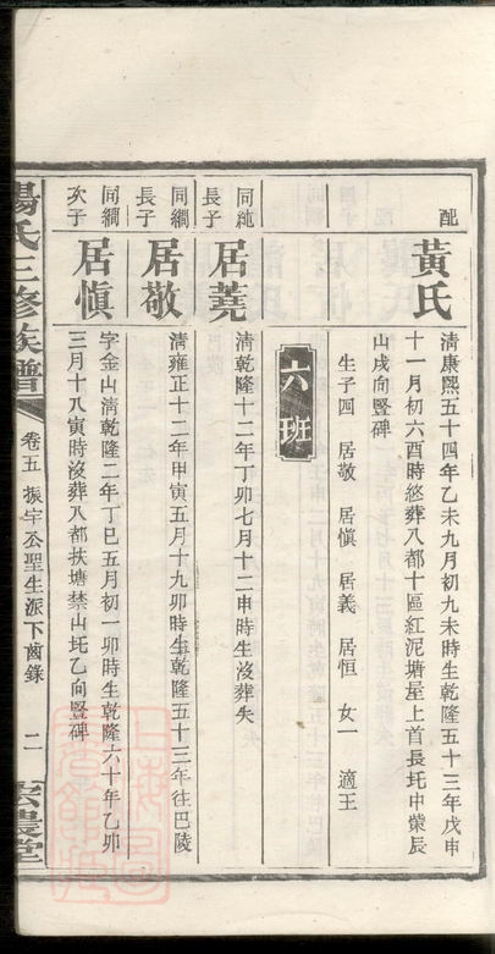 配
黃氏
清康熙五十四年乙未九月初九未時生乾隆五十三年戊申
十一月初六酉時終葬八都十區紅泥塘屋上首長圫中塋辰
山戌向豎碑
生子四 居敬 居愼 居義 居恒 女一 適王
六班
同純
長子
居蕘
清乾隆十二年丁卯七月十二申時生沒葬失
同繝
長子
居敬
清雍正十二年甲寅五月十九卯時生乾隆五十三年往巴陵
同繝
次子
居愼
字金山清乾隆二年丁巳五月初一卯時生乾隆六十年乙卯
三月十八寅時沒葬八都扶塘禁山圫乙向豎碑
楊氏三修族譜
卷五 振宇公聖生派下齒錄
二
宏農堂